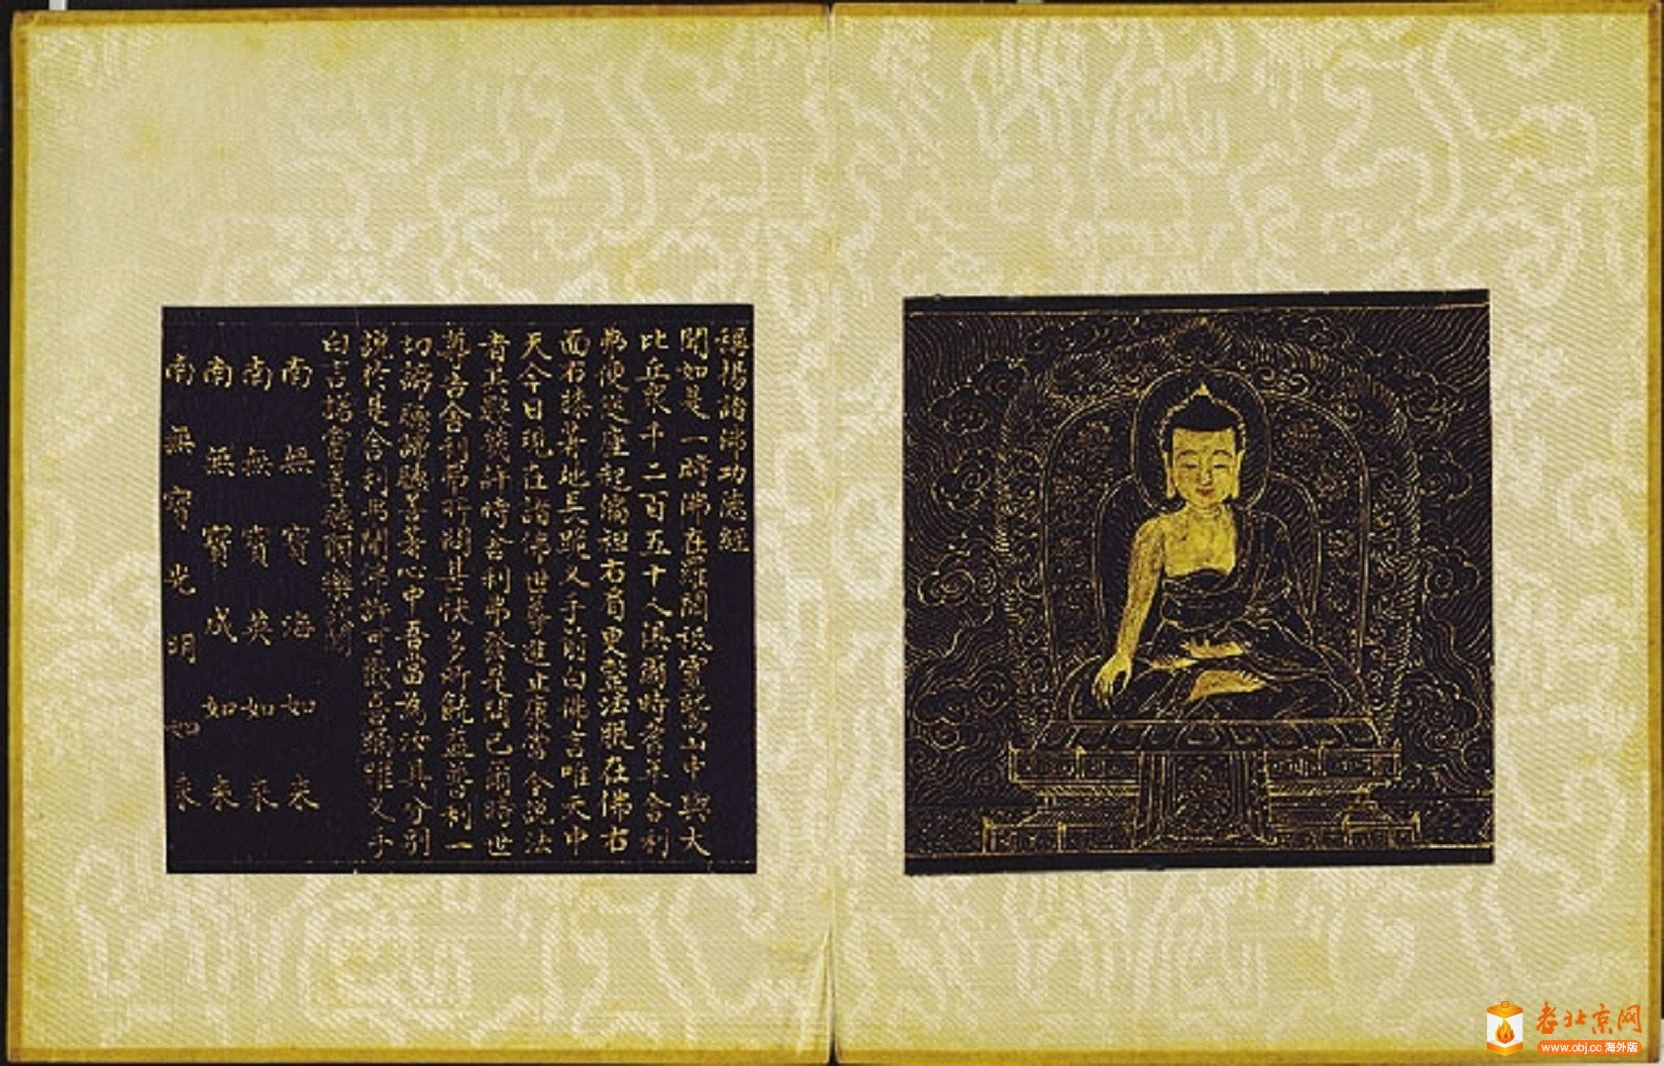 稱揚諸佛功德經
聞如是一時佛在羅閱祇靈鷲山中與大
比丘衆千二百五十人俱爾時耆年舍利
弗便從座起偏袒右肩更整法服在佛右
面右膝著地長跪叉手前白佛言唯天中
天今日現在諸佛世尊進止康常今說法
者其數幾許時舍利弗發是問已爾時世
尊告舍利弗所問甚快多所饒益普利一
切諦聽諦聽善著心中吾當為汝具分別
說於是舍利弗聞佛許可歡喜踊唯叉手
白言諾當善聽願樂欲聞
南無寶海如来
南無寶英如来
南無寶成如来
南無寶光明如来
老北京网
www.obj.cc 海外版